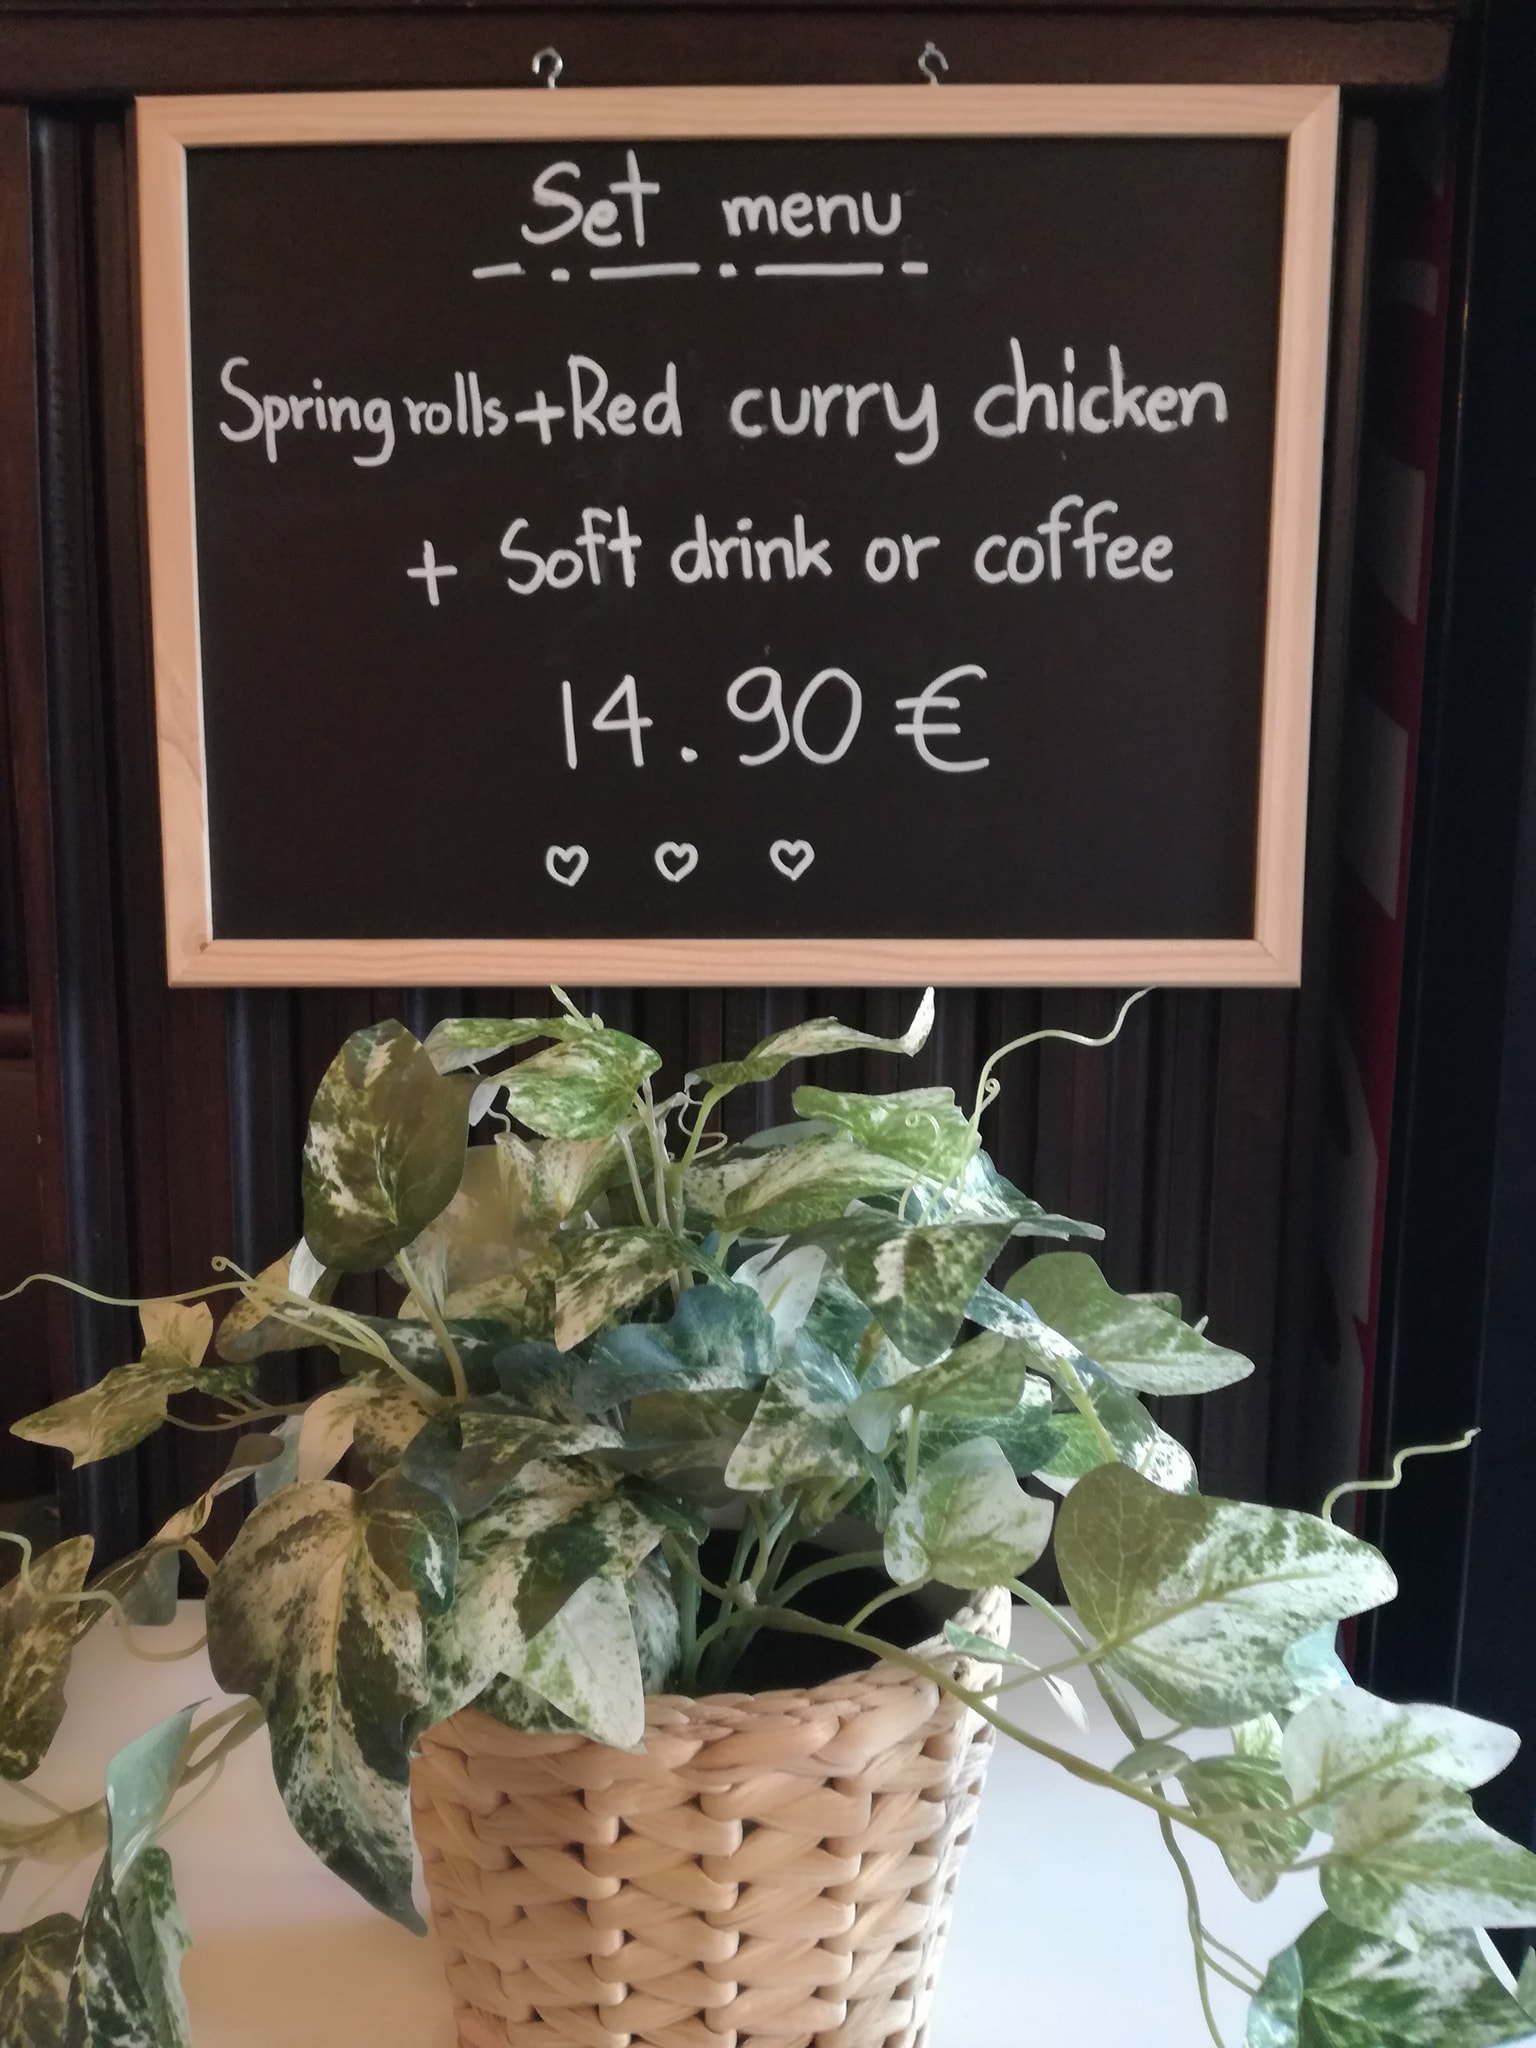 Set menu
Spring rolls + Red curry chicken
+ Soft drink or coffee
14.90 €